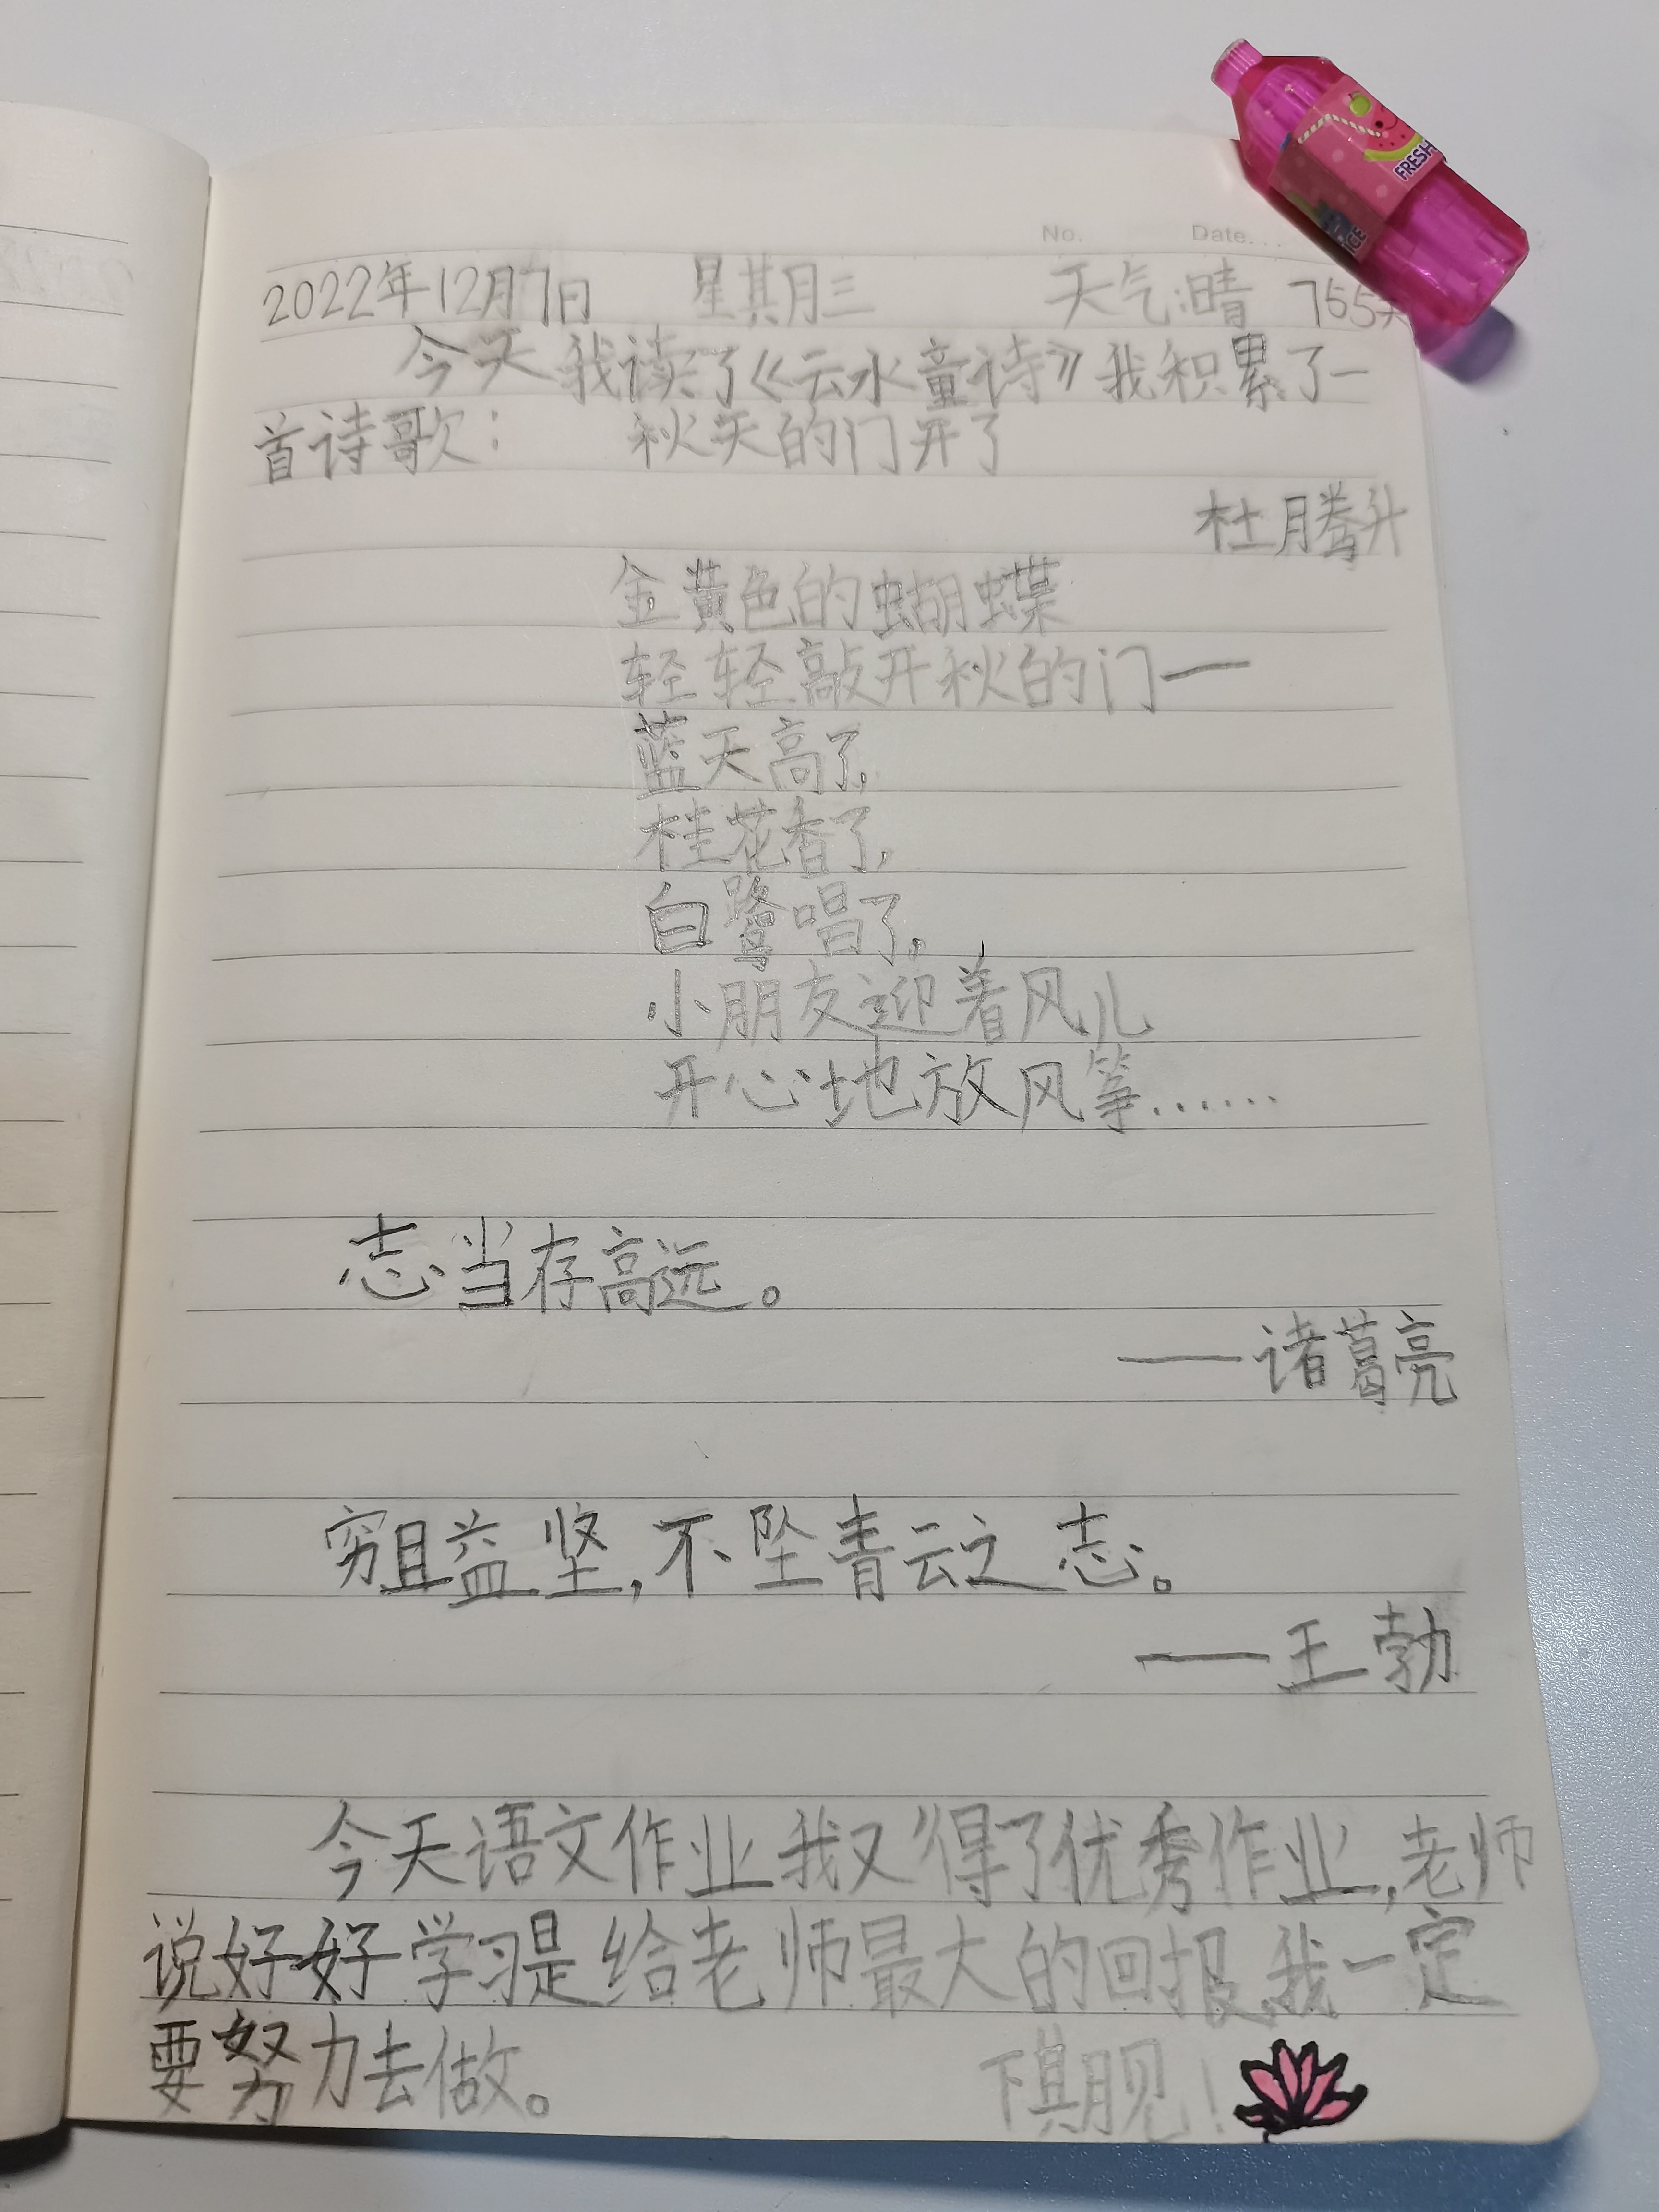 No. Date
FRESH
ICE
2022年12月7日 星其月三 天气:晴 755天
今天我读了《云水童诗》我积累了一
首诗歌: 秋天的门开了
杜腾升
金黄色的蝴蝶
轻轻敲开秋的门一
蓝天高了,
桂花香了,
白鹭唱了,
小朋友迎着风儿
开心地放风筝……
志当存高远。
——诸葛亮
穷且益坚,不坠青云之志。
——王勃
今天语文作业我又得了优秀作业,老师
说好好学习是给老师最大的回报,我一定
要努力去做。 下期见!